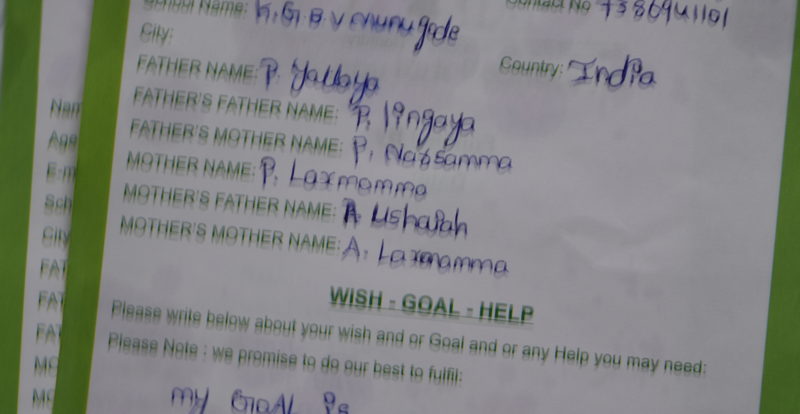 School Name: K.G.B.V Enunugode
Contact No 7386941101
City:
Country: India
FATHER NAME: P. Yallaya
FATHER'S FATHER NAME: P. lingaya
FATHER'S MOTHER NAME: P. Narsamma
MOTHER NAME: P. Laxmamma
MOTHER'S FATHER NAME: A Ushaiah
MOTHER'S MOTHER NAME: A. Laxmamma
WISH - GOAL - HELP
Please write below about your wish and or Goal and or any Help you may need:
Please Note : we promise to do our best to fulfil:
MY GOAL is
Nam
Age
E-m
Sch
City
FAT
FAT
FAT
MO
MO